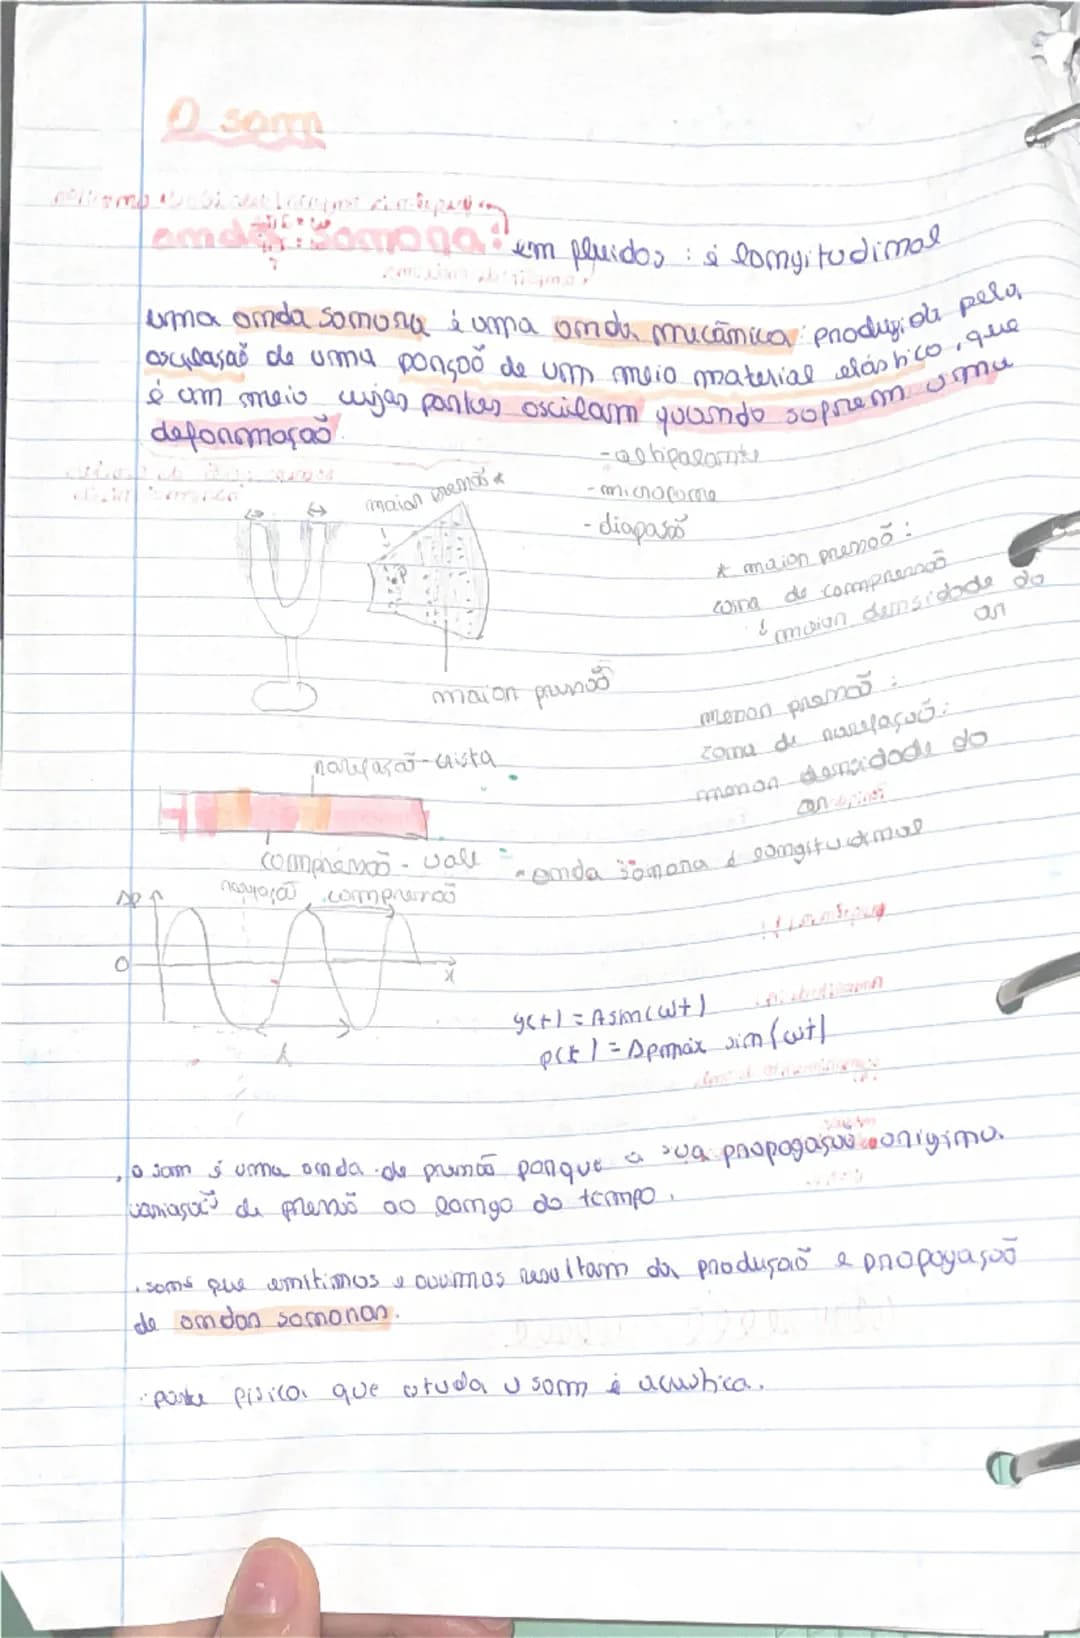 O som
onda sonora: em fluidos: é longitudinal
uma onda sonora é uma onda mecânica produzida pela
oscilação de uma porção de um meio material elástico, que
é um meio cujas partes oscilam quando sofrem uma
deformação.
- altifalante
- microfone
- diapasão
maior pressão *
P
* maior pressão:
zona de compressão
maior densidade do
ar
maior pressão
menor pressão:
zona de rarefação:
menor densidade do
ar
rarefação - crista
compressão - vale
- onda sonora é longitudinal
rarefação compressão
Δp
0
x
λ
y(t) = A sin(ωt)
p(t) = Δpmáx sin(ωt)
. o som é uma onda de pressão porque a sua propagação origina
variação de pressão ao longo do tempo.
. sons que emitimos e ouvimos resultam da produção e propagação
de ondas sonoras.
. parte física que estuda o som é acustica.